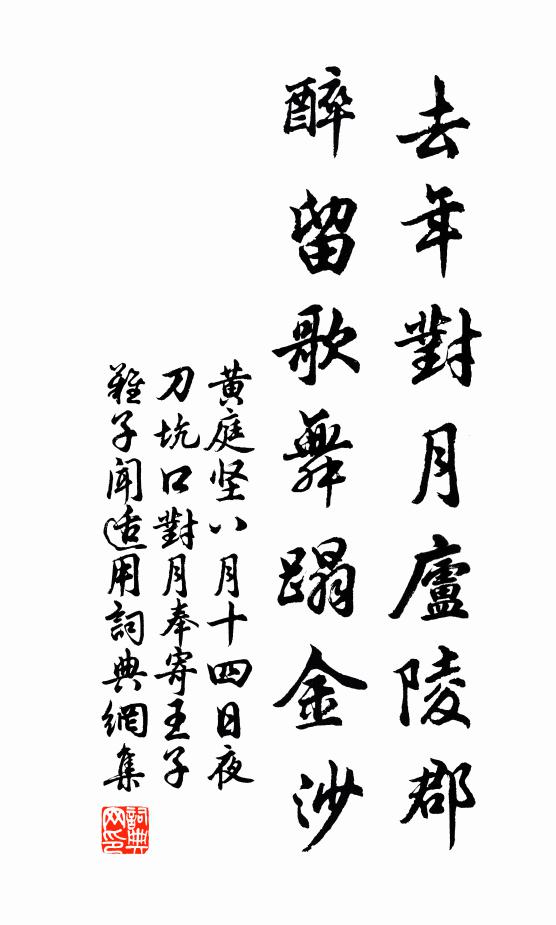 去年對月廬陵郡
醉留歌舞蹋金沙
黄庭坚八月十四日夜
刀坑口對月奉寄王子
難子聞适用詞典網集
詞典网印